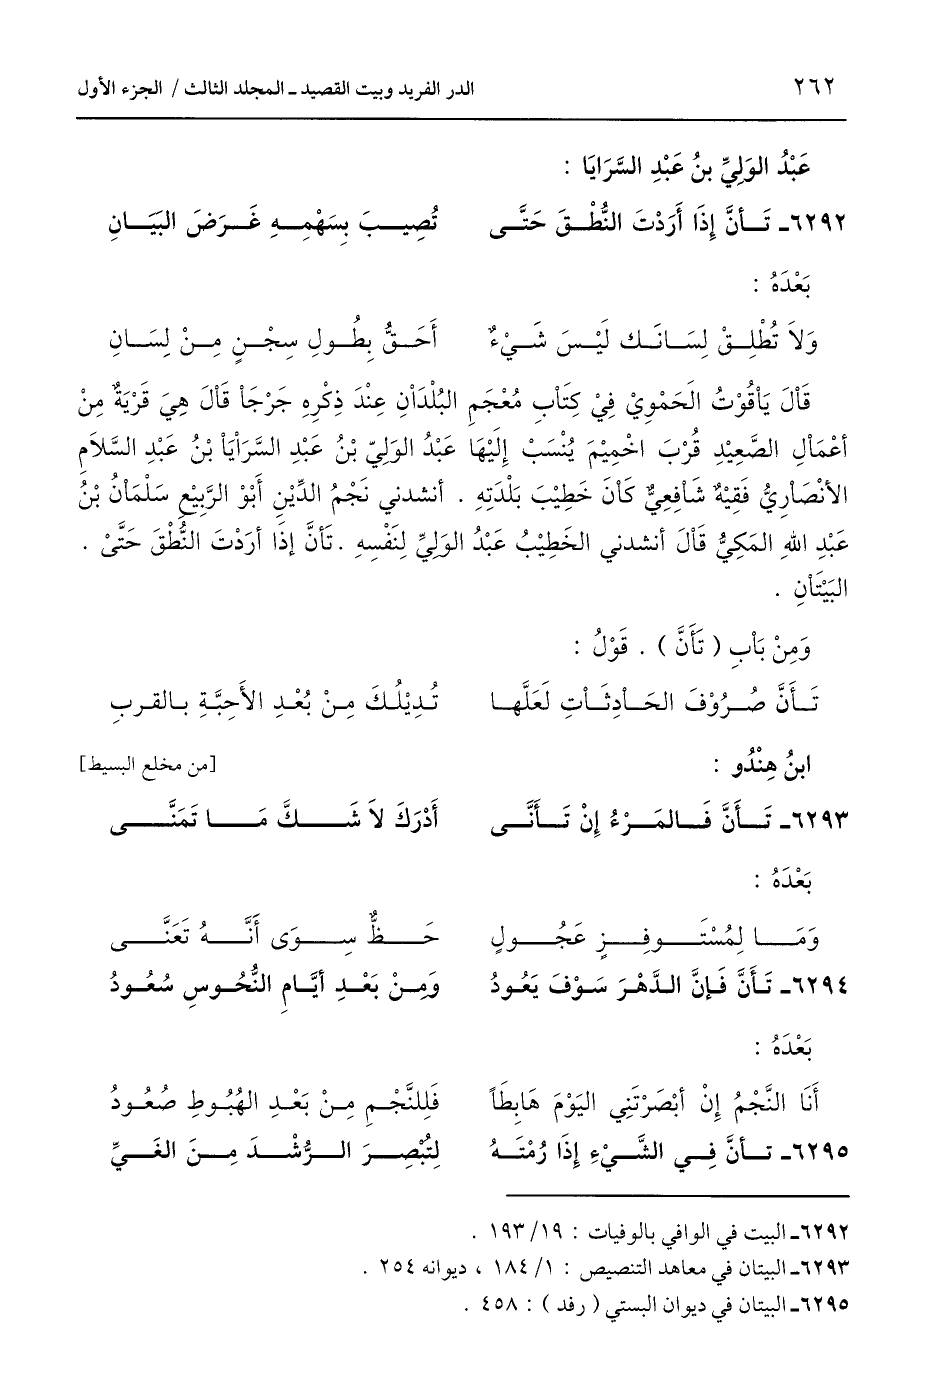 ٢٦٢ الدر الفريد وبيت القصيد ـ المجلد الثالث / الجزء الأول
عَبْدُ الوَلِيِّ بنُ عَبْدِ السَّرَايَا :
٦٢٩٢ـ تَــأنَّ إِذَا أَرَدْتَ النُّطْــقَ حَتَّــى تُصِيــبَ بِسَهْمِــهِ غَــرَضَ البَيَــانِ
بَعْدَهُ :
وَلاَ تُطْلِــقْ لِسَــانَــك لَيْــسَ شَــيْءٌ أَحَــقُّ بِطُــولِ سِجْــنٍ مِــنْ لِسَــانِ
قَاْلَ يَاْقُوْتُ الحَمْوِيْ فِيْ كِتَاْبِ مُعْجَمِ البُلْدَاْنِ عِنْدَ ذِكْرِهِ جَرْجَاْ قَاْلَ هِيَ قَرْيَةٌ مِنْ
أعْمَاْلِ الصَّعِيْدِ قُرْبَ اخْمِيْمَ يُنْسَبْ إِلَيْهَا عَبْدُ الوَلِيّ بْنُ عَبْدِ السَّرَاْيَاْ بْنُ عَبْدِ السَّلَاْمِ
الأنْصَاْرِيُّ فَقِيْهٌ شَافِعِيٌّ كَاْنَ خَطِيْبَ بَلْدَتِهِ . أنشدني نَجْمُ الدِّيْنِ أَبُوْ الرَّبِيْعِ سَلْمَاْنُ بْنُ
عَبْدِ اللهِ المَكِيُّ قَاْلَ أنشدني الخَطِيْبُ عَبْدُ الوَلِيِّ لِنَفْسِهِ .تَأنَّ إذَا أرَدْتَ النُّطْقَ حَتَّىْ .
البَيْتَاْنِ .
وَمِنْ بَاْبِ ( تَأَنَّ ) . قَوْلُ :
تَــأَنَّ صُــرُوْفَ الحَــاْدِثَــاْتِ لَعَلَّهــا تُــدِيْلُــكَ مِــنْ بُعْــدِ الأَحِبَّــةِ بــالقربِ
ابنُ هِنْدُو : [من مخلع البسيط]
٦٢٩٣ـ تَــأَنَّ فَــالمَــرْءُ إِنْ تَــأَنَّــى أَدْرَكَ لاَ شَــــكَّ مَــــا تَمَنَّــــى
بَعْدَهُ :
وَمَــــا لِمُسْتَــــوفِــــزٍ عَجُــــولٍ حَــــظٌّ سِــــوَى أَنَّــــهُ تَعَنَّــــى
٦٢٩٤ـ تَــأَنَّ فَــإِنَّ الــدَّهْــرَ سَــوْفَ يَعُــودُ وَمِــنْ بَعْــدِ أَيَّــامِ النُّحُــوسِ سُعُــودُ
بَعْدَهُ :
أَنَا النَّجْمُ إِنْ أَبْصَرْتَنِي اليَوْمَ هَابِطَاً فَلِلنَّجْــمِ مِــنْ بَعْــدِ الهُبُــوطِ صُعُــودُ
٦٢٩٥ـ تــأنَّ فِــي الشَّــيْءِ إِذَا رُمْتَــهُ لِتُبْصِــرَ الــرُّشْــدَ مِــنَ الغَــيِّ
٦٢٩٢ـ البيت في الوافي بالوفيات : ١٩/ ١٩٣ .
٦٢٩٣ـ البيتان في معاهد التنصيص : ١/ ١٨٤ ، ديوانه ٢٥٤ .
٦٢٩٥ـ البيتان في ديوان البستي ( رفد ) : ٤٥٨ .